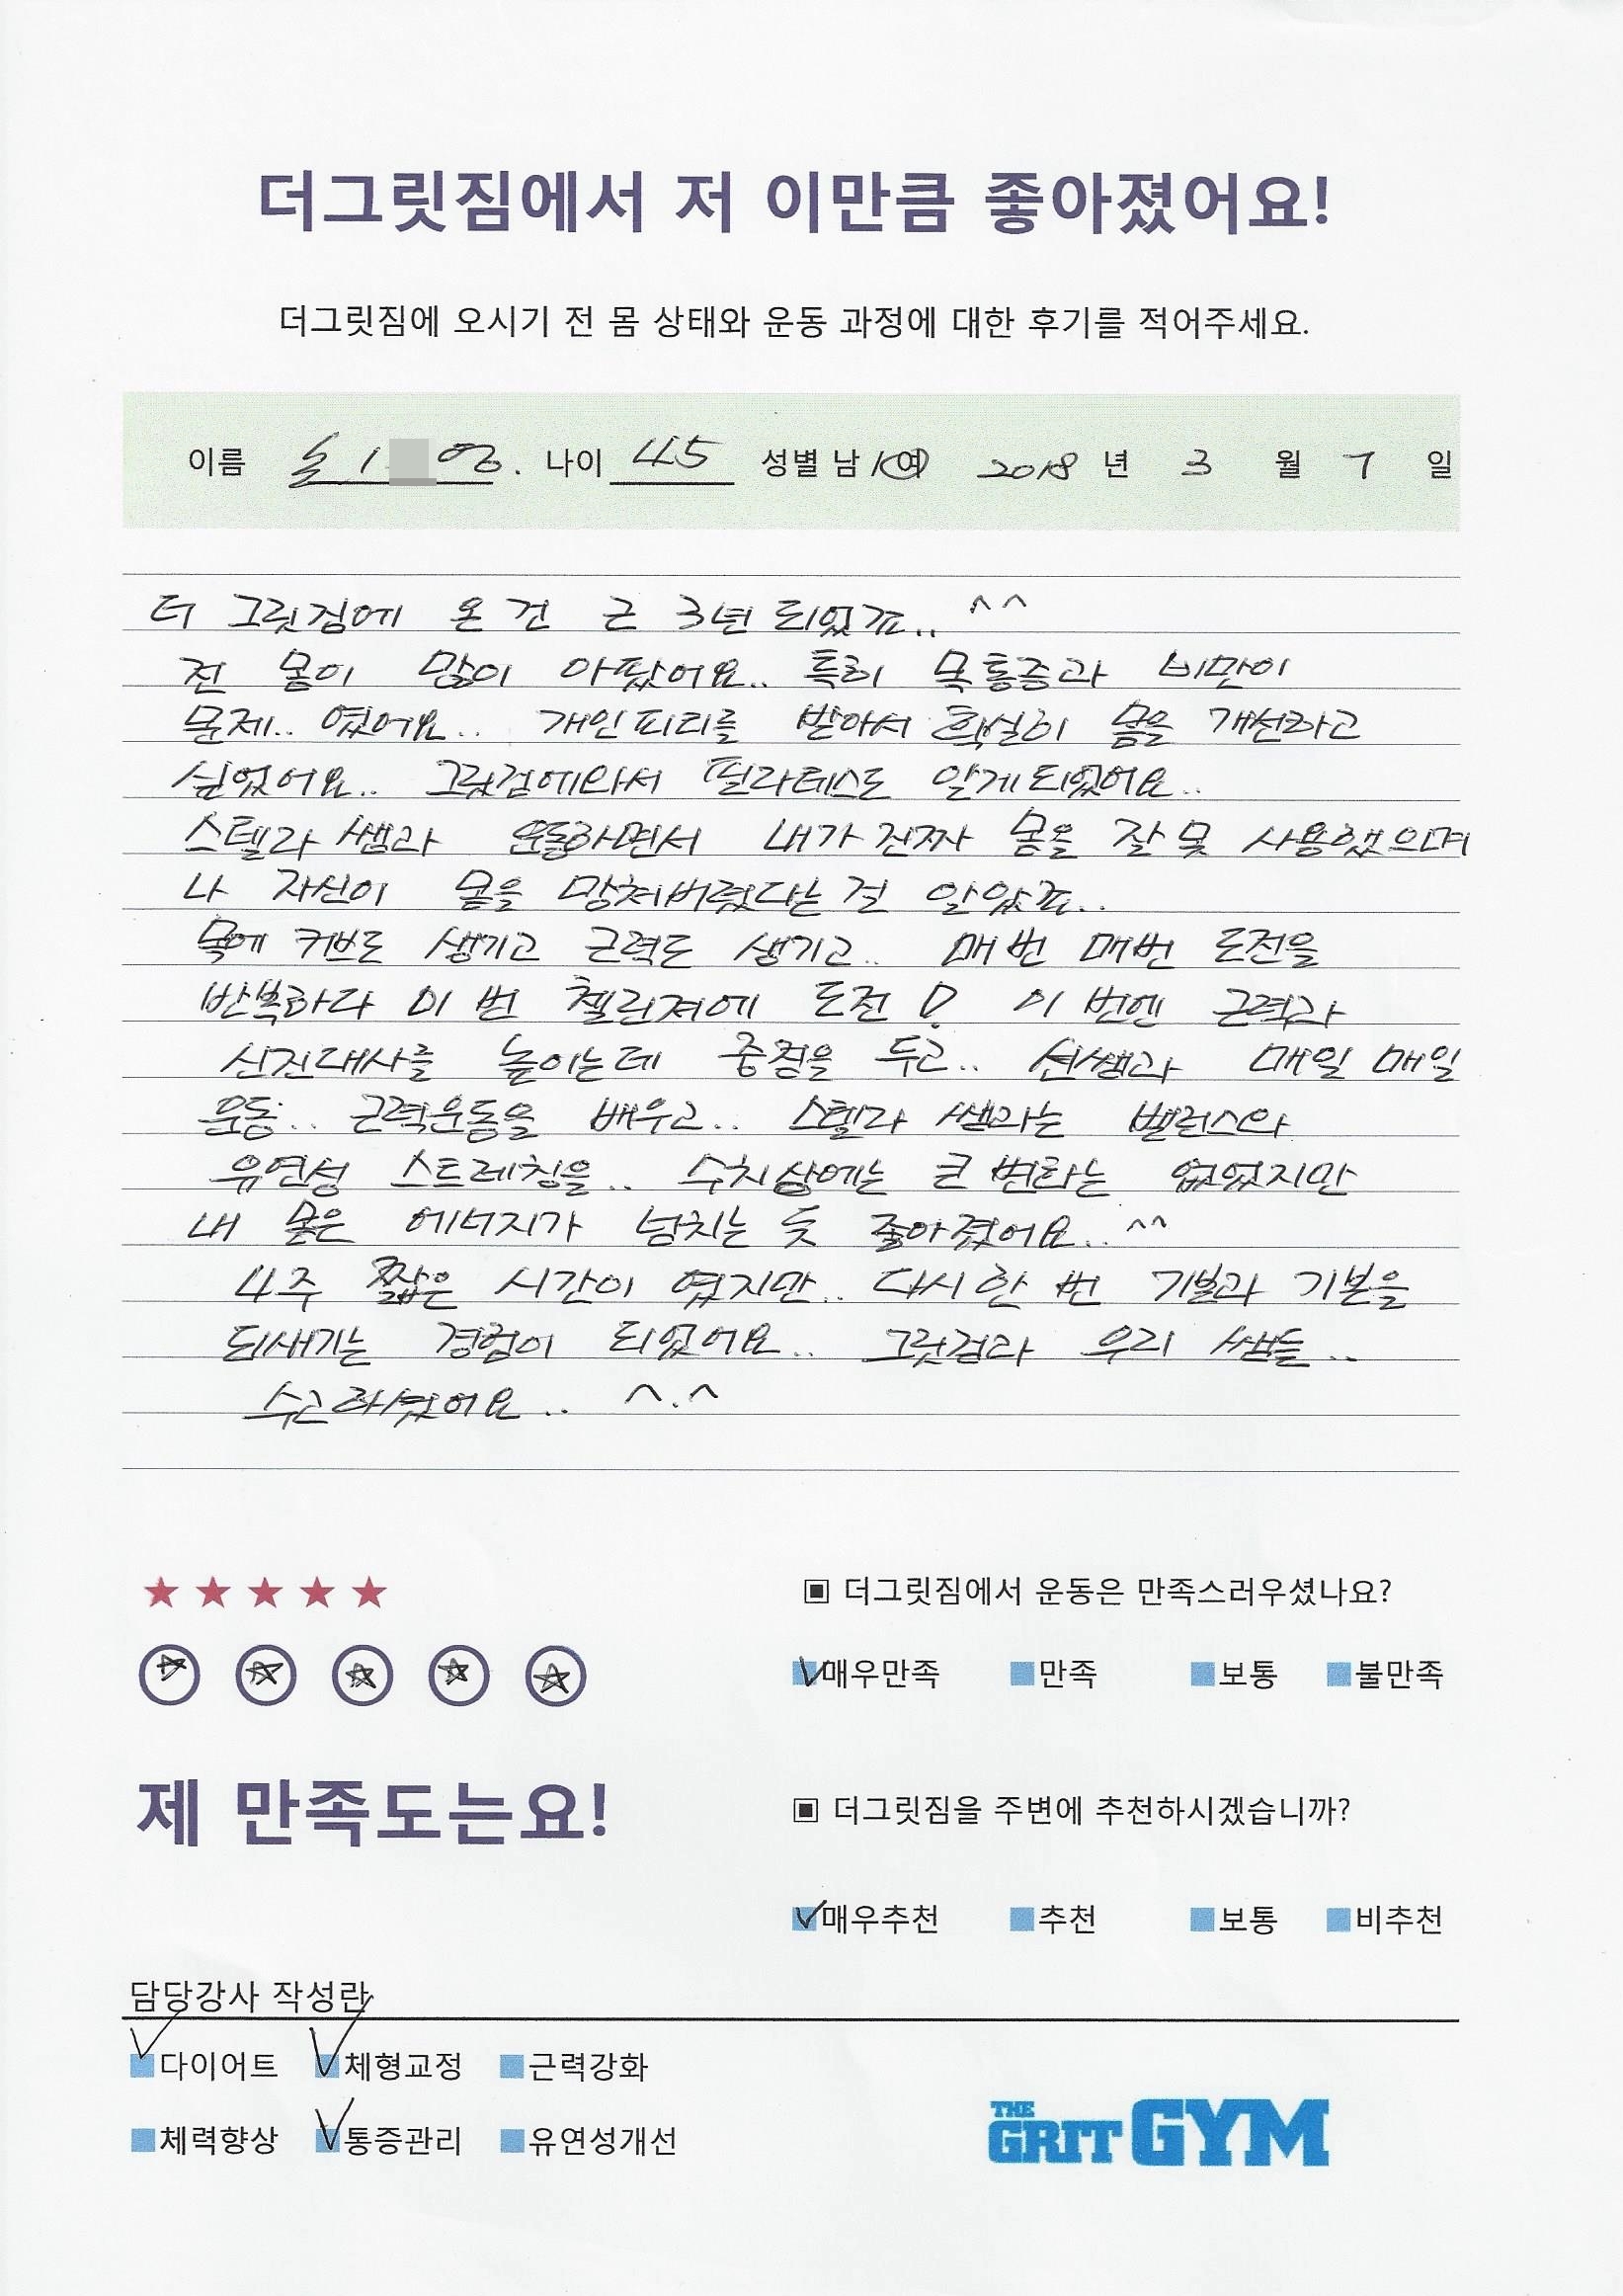 더그릿짐에서 저 이만큼 좋아졌어요!
더그릿짐에 오시기 전 몸 상태와 운동 과정에 대한 후기를 적어주세요.
이름 나이 45 성별 남/여 2018 년 3 월 7 일
더 그릿짐에 온 건 근 3년 되었죠.. ^^
전 몸이 많이 아팠어요.. 특히 목통증과 비만이
문제.. 였어요.. 개인피티를 받아서 확실히 몸을 개선하고
싶었어요.. 그릿짐에와서 필라테스도 알게되었어요..
스텔라 쌤과 운동하면서 내가 진짜 몸을 잘 못 사용했으며
나 자신이 몸을 망쳐버렸다는 걸 알았죠..
목에 커브도 생기고 근력도 생기고.. 매번 매번 도전을
반복하다 이 번 첼린져에 도전! 이 번엔 근력과
신진대사를 높이는데 중점을 두고.. 션쌤과 매일 매일
운동.. 근력운동을 배우고.. 스텔라 쌤과는 밸런스와
유연성 스트레칭을.. 수치상에는 큰 변화는 없었지만
내 몸은 에너지가 넘치는 듯 좋아졌어요..^^
4주 짧은 시간이 였지만.. 다시 한 번 기본과 기본을
되새기는 경험이 되었어요.. 그릿짐과 우리 쌤들..
수고하셨어요.. ^.^
▣ 더그릿짐에서 운동은 만족스러우셨나요?
매우만족 만족 보통 불만족
제 만족도는요!
▣ 더그릿짐을 주변에 추천하시겠습니까?
매우추천 추천 보통 비추천
담당강사 작성란
다이어트 체형교정 근력강화
체력향상 통증관리 유연성개선
THE GRIT GYM